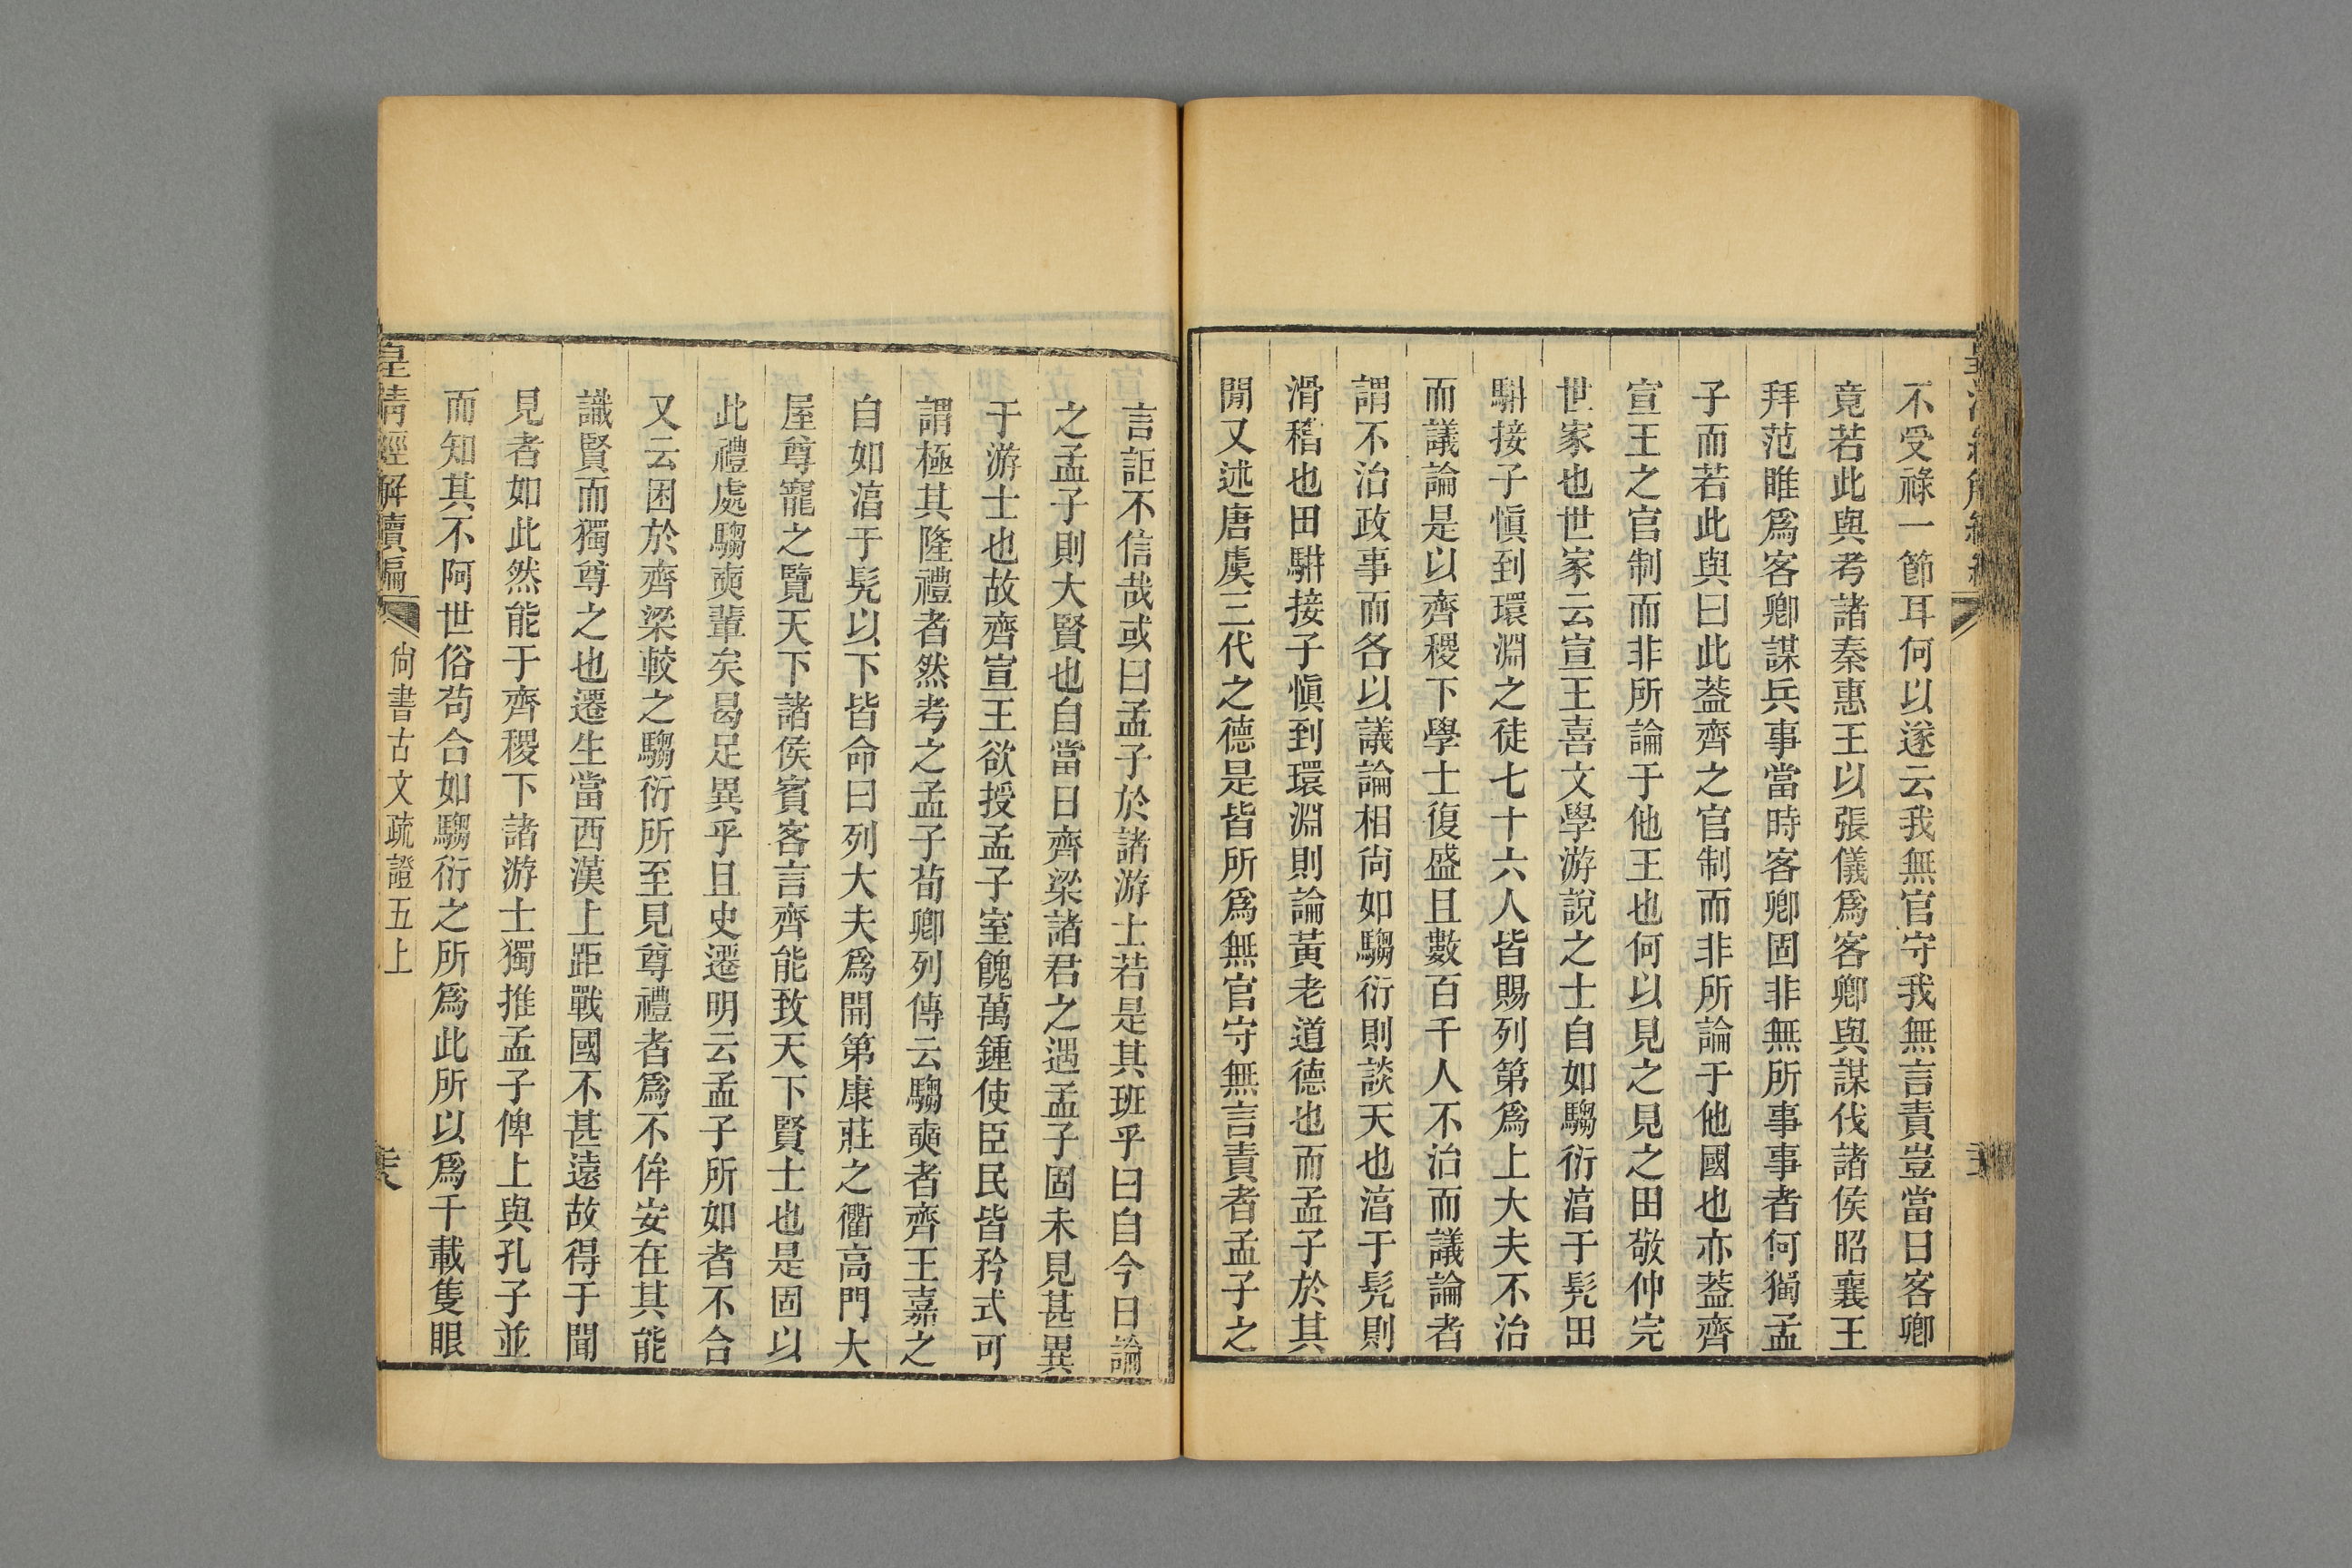 不受祿一節耳何以遂云我無官守我無言責豈當日客卿
竟若此與考諸秦惠王以張儀爲客卿與謀伐諸侯昭襄王
拜范睢爲客卿謀兵事當時客卿固非無所事事者何獨孟
子而若此與曰此葢齊之官制而非所論于他國也亦葢齊
宣王之官制而非所論于他王也何以見之見之田敬仲完
世家也世家云宣王喜文學游說之士自如騶衍淳于髡田
駢接子慎到環淵之徒七十六人皆賜列第爲上大夫不治
而議論是以齊稷下學士復盛且數百千人不治而議論者
謂不治政事而各以議論相尚如騶衍則談天也淳于髡則
滑稽也田駢接子慎到環淵則論黃老道德也而孟子於其
閒又述唐虞三代之德是皆所爲無官守無言責者孟子之
言詎不信哉或曰孟子於諸游士若是其班乎曰自今日論
之孟子則大賢也自當日齊梁諸君之遇孟子固未見甚異
于游士也故齊宣王欲授孟子室餽萬鍾使臣民皆矜式可
謂極其隆禮者然考之孟子荀卿列傳云騶奭者齊王嘉之
自如淳于髡以下皆命曰列大夫爲開第康莊之衢高門大
屋尊寵之覽天下諸侯賓客言齊能致天下賢士也是固以
此禮處騶奭輩矣曷足異乎且史遷明云孟子所如者不合
又云困於齊梁較之騶衍所至見尊禮者爲不侔安在其能
識賢而獨尊之也遷生當西漢上距戰國不甚遠故得于聞
見者如此然能于齊稷下諸游士獨推孟子俾上與孔子並
而知其不阿世俗苟合如騶衍之所爲此所以爲千載隻眼
皇清經解續編
尚書古文疏證五上